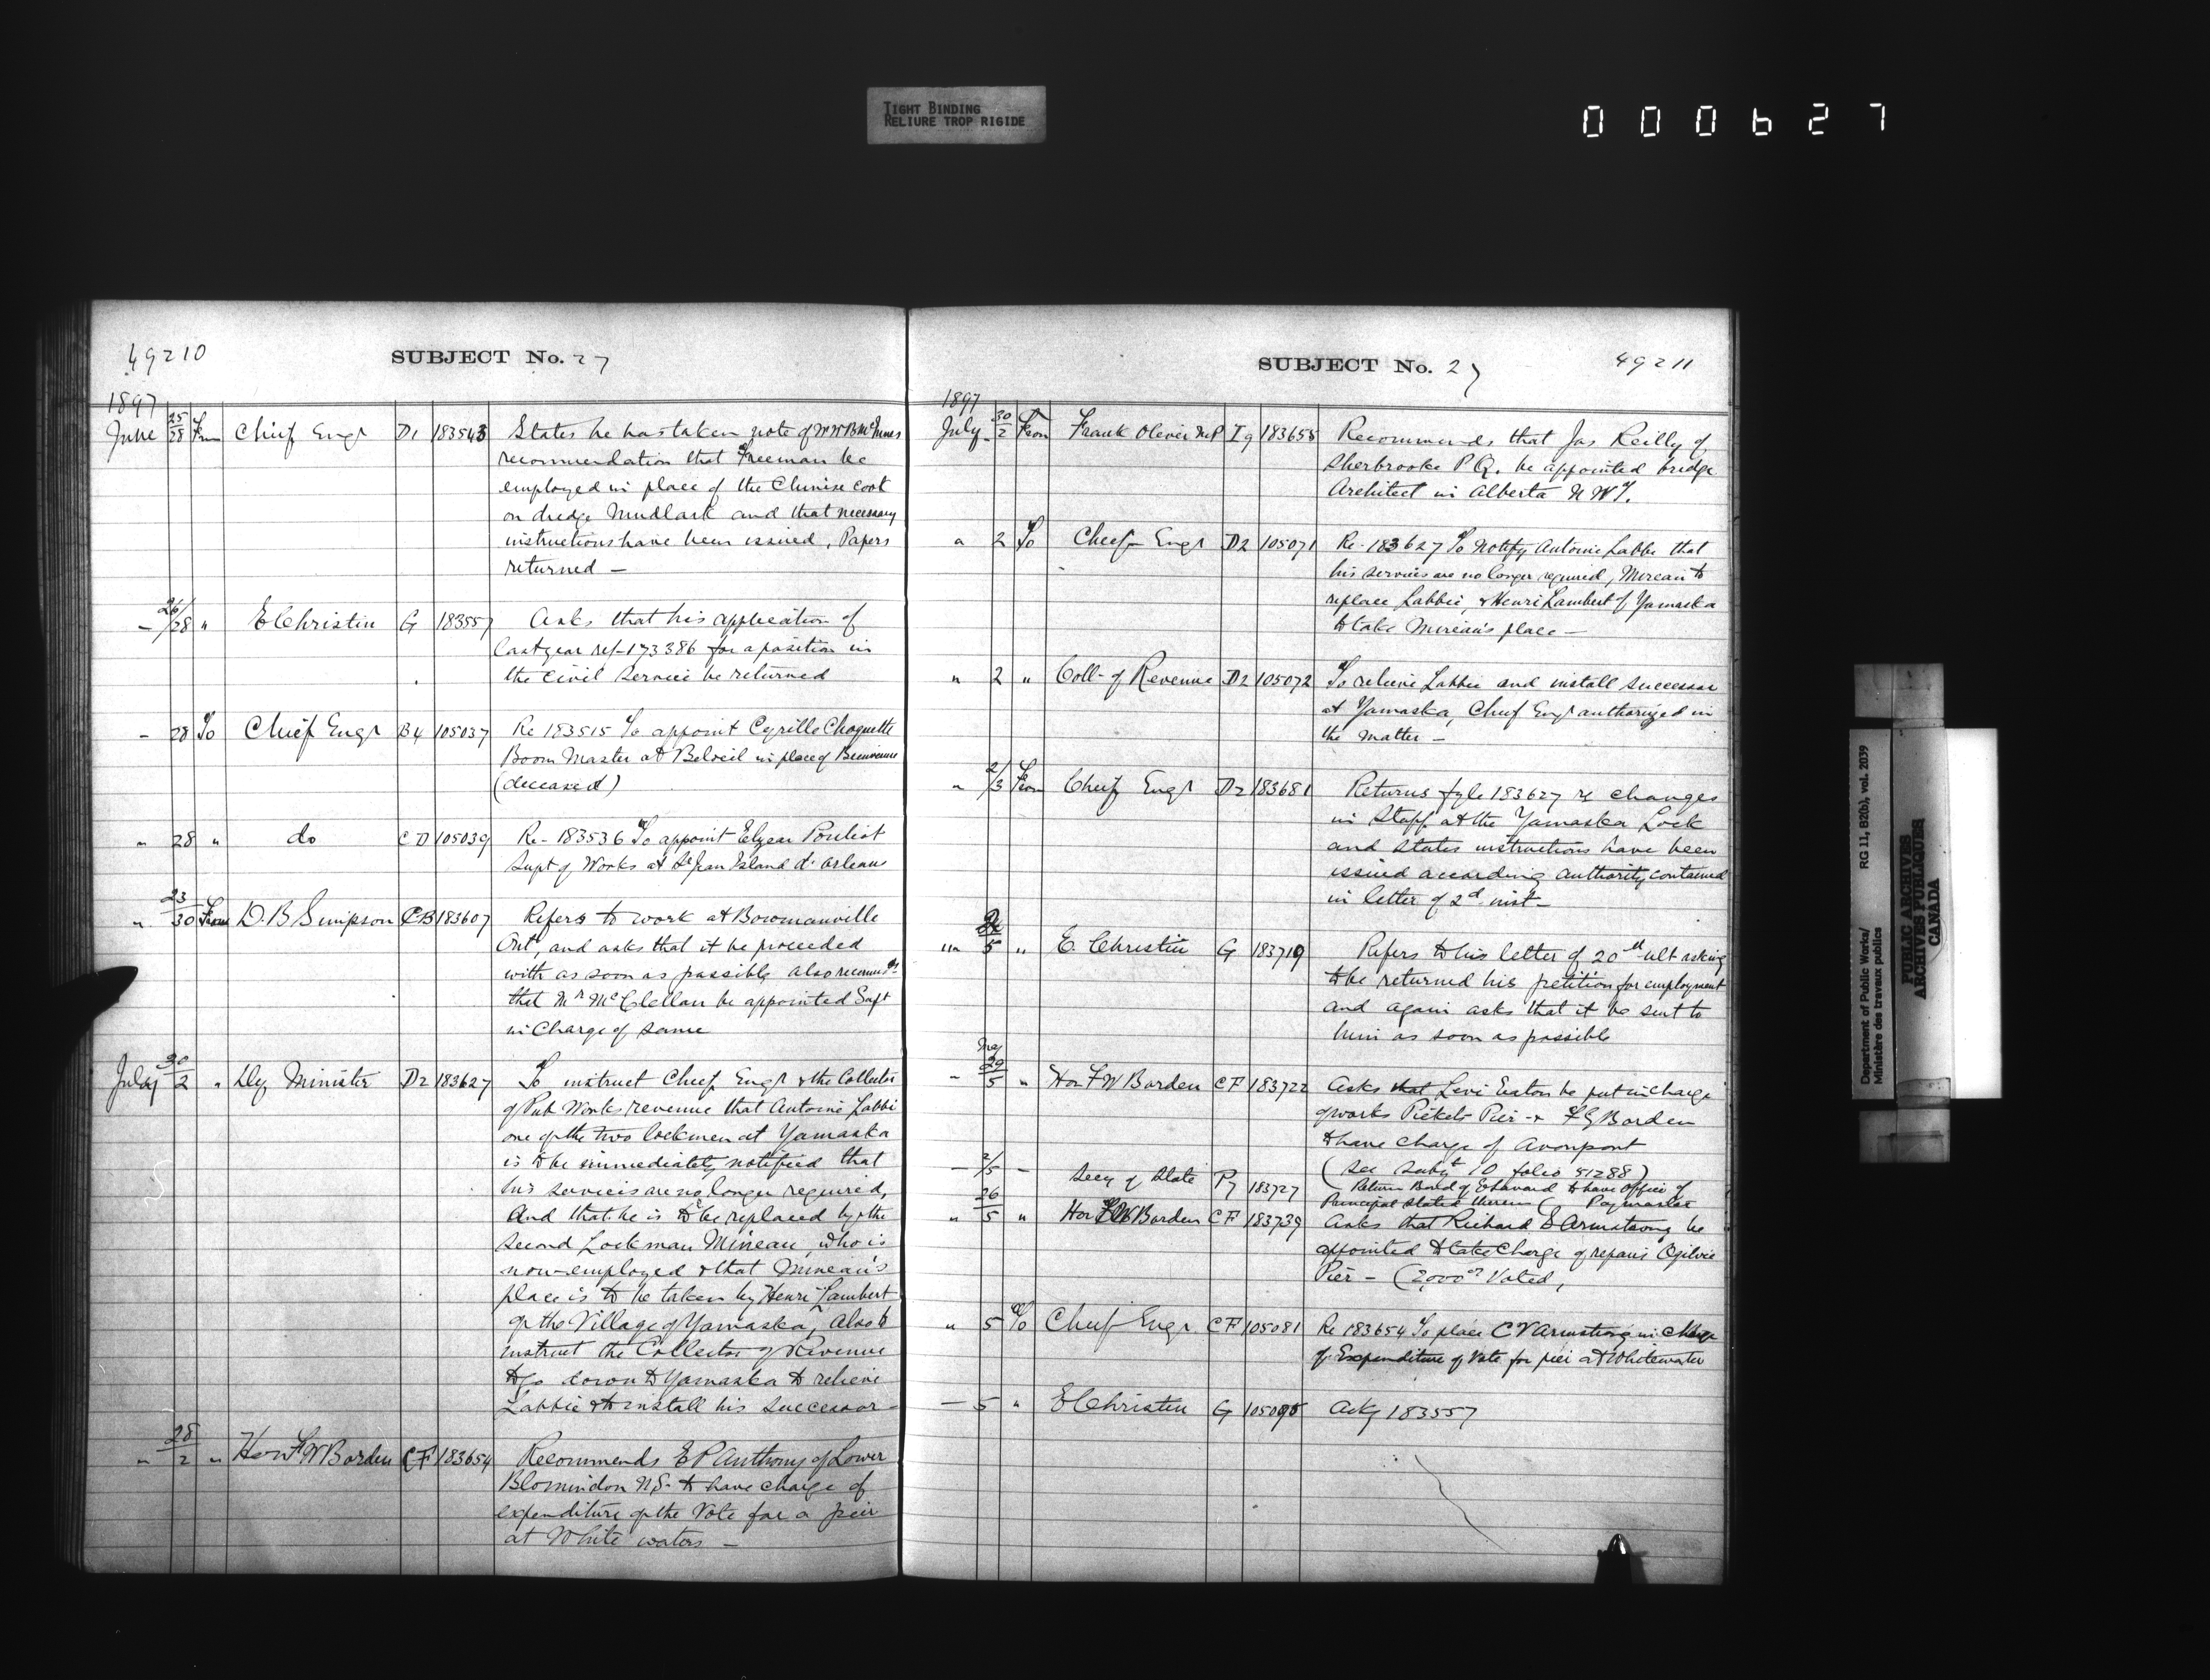 TIGHT BINDING
RELIURE TROP RIGIDE
000627
49210
SUBJECT No. 27
1897
June 25/28 From Chief Engr D1 183543 States he has taken note of W W B McInnes
recommendation that Freeman be
employed in place of the Chinese cook
on dredge Mudlark and that necessary
instructions have been issued, Papers
returned —
— 26/28 " E Christin G 183557 Asks that his application of
last year ref- 173386 for a position in
the Civil Service be returned
— 28 To Chief Engr B4 105037 Re 183515 To appoint Cyrille Choquette
Boom Master at Beloeil in place of Bienvenue
(deceased)
" 28 " do CD 105039 Re- 183536 To appoint Elzear Pouliot
Supt of Works at St Jean Island d'Orleans
" 23/30 From D. B Simpson CB 183607 Refers to work at Bowmanville
Ont, and asks that it be proceeded
with as soon as possible, also recomds
that Mr McClellan be appointed Supt
in Charge of same
July 30/2 " Dy Minister D2 183627 To instruct Chief Engr & the Collector
of Pub Works revenue that Antoine Labbi
one of the two lockmen at Yamaska
is to be immediately notified that
his services are no longer required,
And that he is to be replaced by the
second Lockman Mineau, who is
now employed & that Mineau's
place is to be taken by Henri Lambert
of the Village of Yamaska, Also to
instruct the Collector of Revenue
to go down to Yamaska to relieve
Labbie & to install his successor —
" 28/2 " Hon F W Borden CF 183654 Recommends E P Anthony of Lower
Blomindon N.S. to have charge of
expenditure of the Vote for a pier
at White waters —
SUBJECT No. 27
49211
1897
July 30/2 From Frank Oliver M.P I9 183655 Recommends that Jas Reilly of
Sherbrooke P Q. be appointed bridge
Architect in Alberta N W T.
" 2 To Chief Engr D2 105071 Re- 183627 To Notify Antoine Labbe that
his services are no longer required, Mineau to
replace Labbie, & Henri Lambert of Yamaska
to take Mineau's place —
" 2 " Coll- of Revenue D2 105072 To relieve Labbie and install successor
at Yamaska, Chief Engr authorized in
the matter —
" 2/3 From Chief Engr D2 183681 Returns fyle 183627 re changes
in Staff at the Yamaska Lock
and states instructions have been
issued according authority contained
in letter of 2d inst —
" 5 " E. Christin G 183719 Refers to his letter of 20th ult asking
to be returned his petition for employment
and again asks that it be sent to
him as soon as possible
— 29/5 " Hon F W Borden CF 183722 Asks that Levi Eaton be put in charge
of works Pickets Pier - & F G Borden
to have charge of Avonport
(See Subjt 10 folio 51288)
— 2/5 — Secy of State P7 183727 Return Board of to have Office of
Principal stated therein ( Paymaster
" 26/5 " Hon F W Borden CF 183739 Asks that Richard E Armstrong be
appointed to take Charge of repairs Ogilvie
Pier — (2,000 Voted,
" 5 To Chief Engr. CF 105081 Re 183654 To place C V Armstrong in Charge
of Expenditure of Vote for pier at Whitewater
— 5 " E Christin G 105095 Ackg 183557
Department of Public Works/ RG 11, B2(b), vol. 2039
Ministère des travaux publics
PUBLIC ARCHIVES
ARCHIVES PUBLIQUES
CANADA